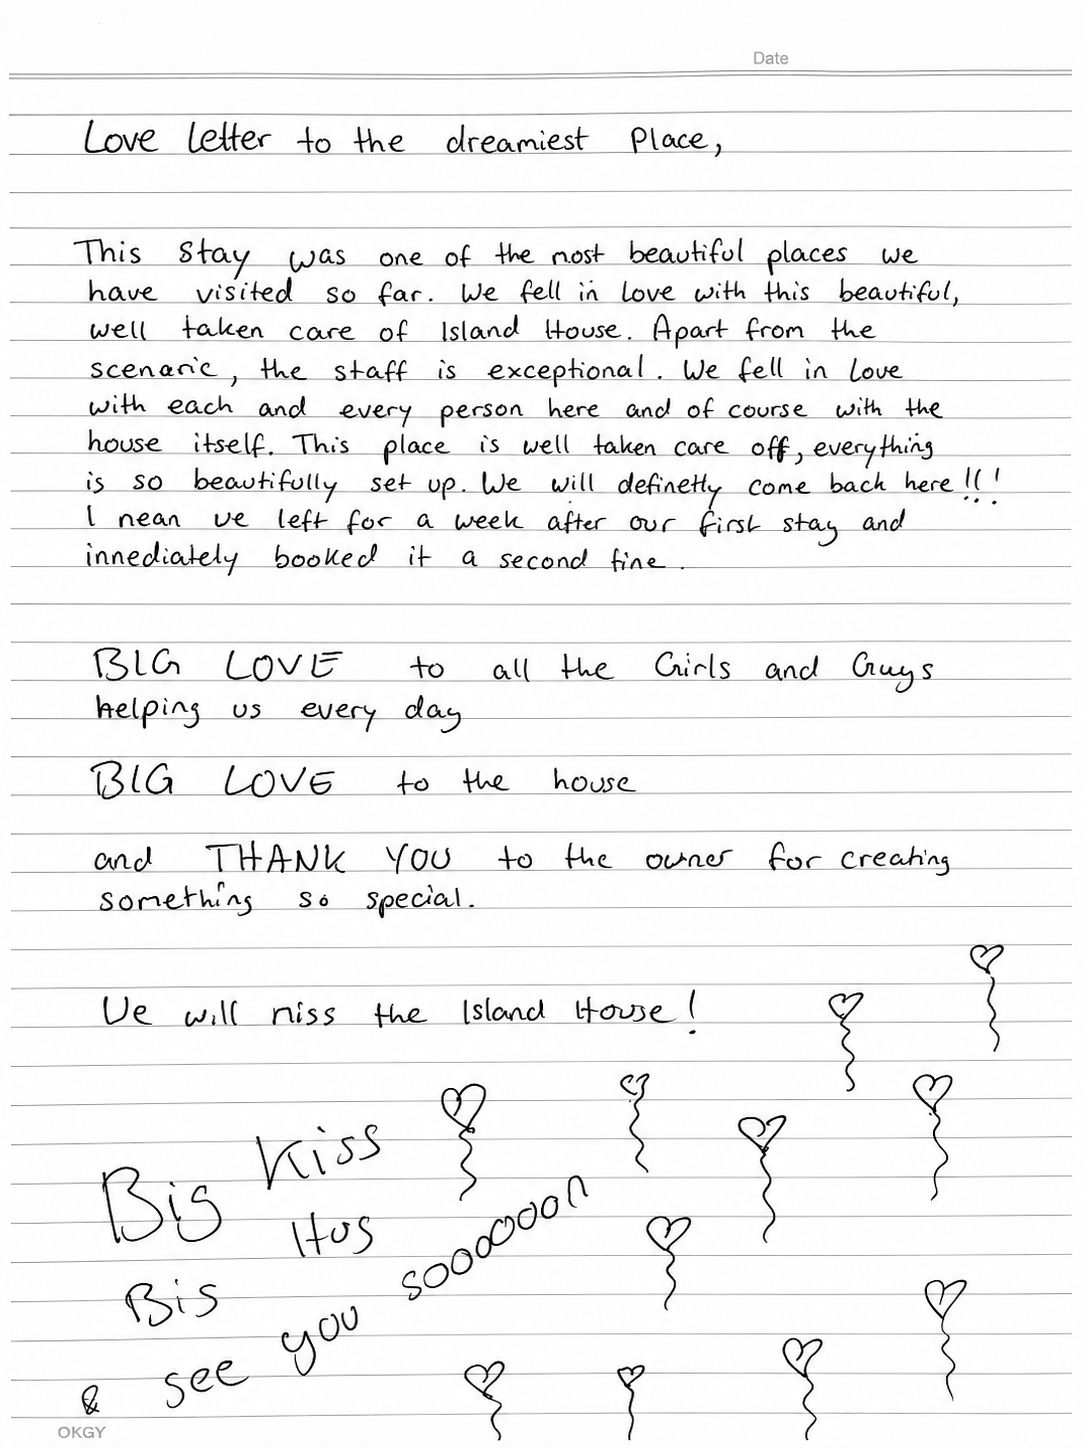 Date
Love letter to the dreamiest Place,
This stay was one of the most beautiful places we
have visited so far. We fell in love with this beautiful,
well taken care of Island House. Apart from the
scenaric, the staff is exceptional. We fell in love
with each and every person here and of course with the
house itself. This place is well taken care off, everything
is so beautifully set up. We will definetly come back here!!!
I mean we left for a week after our first stay and
immediately booked it a second time.
BIG LOVE to all the Girls and Guys
helping us every day
BIG LOVE to the house
and THANK YOU to the owner for creating
something so special.
We will miss the Island House!
Big Kiss
Big Hug
& see you sooooooon
OKGY